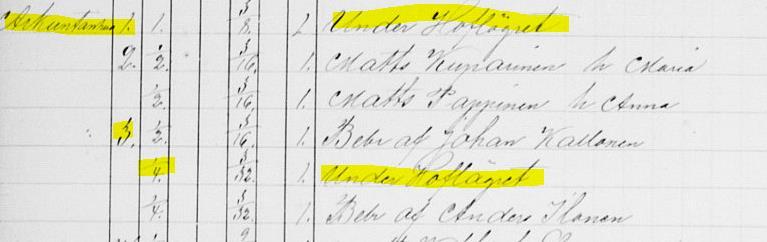 1. 1. 3/8. 1. Under Hoflägret
2. 1/2. 3/16. 1. Matts Kuparinen h Maria
1/2. 3/16. 1. Matts Pappinen h Anna
3. 1/2. 3/16. 1. Bebr af Johan Kallonen
1/4. 3/32. 1. Under Hoflägret
1/4. 3/32. 1. Bebr af Anders Ilonen